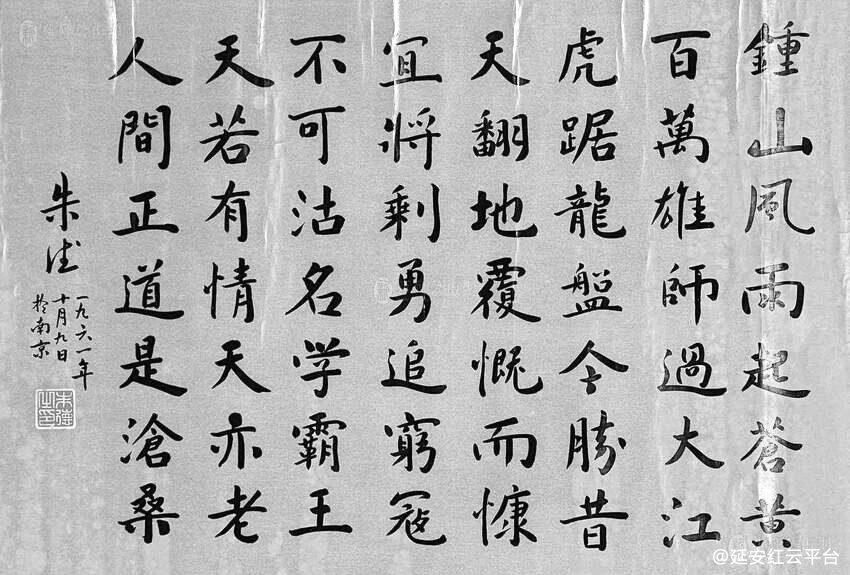 鍾山風雨起蒼黄
百萬雄師過大江
虎踞龍盤今勝昔
天翻地覆慨而慷
宜將剩勇追窮寇
不可沽名学霸王
天若有情天亦老
人間正道是滄桑
朱德
一九六一年
十月九日
於南京
朱德
之印
@延安红云平台